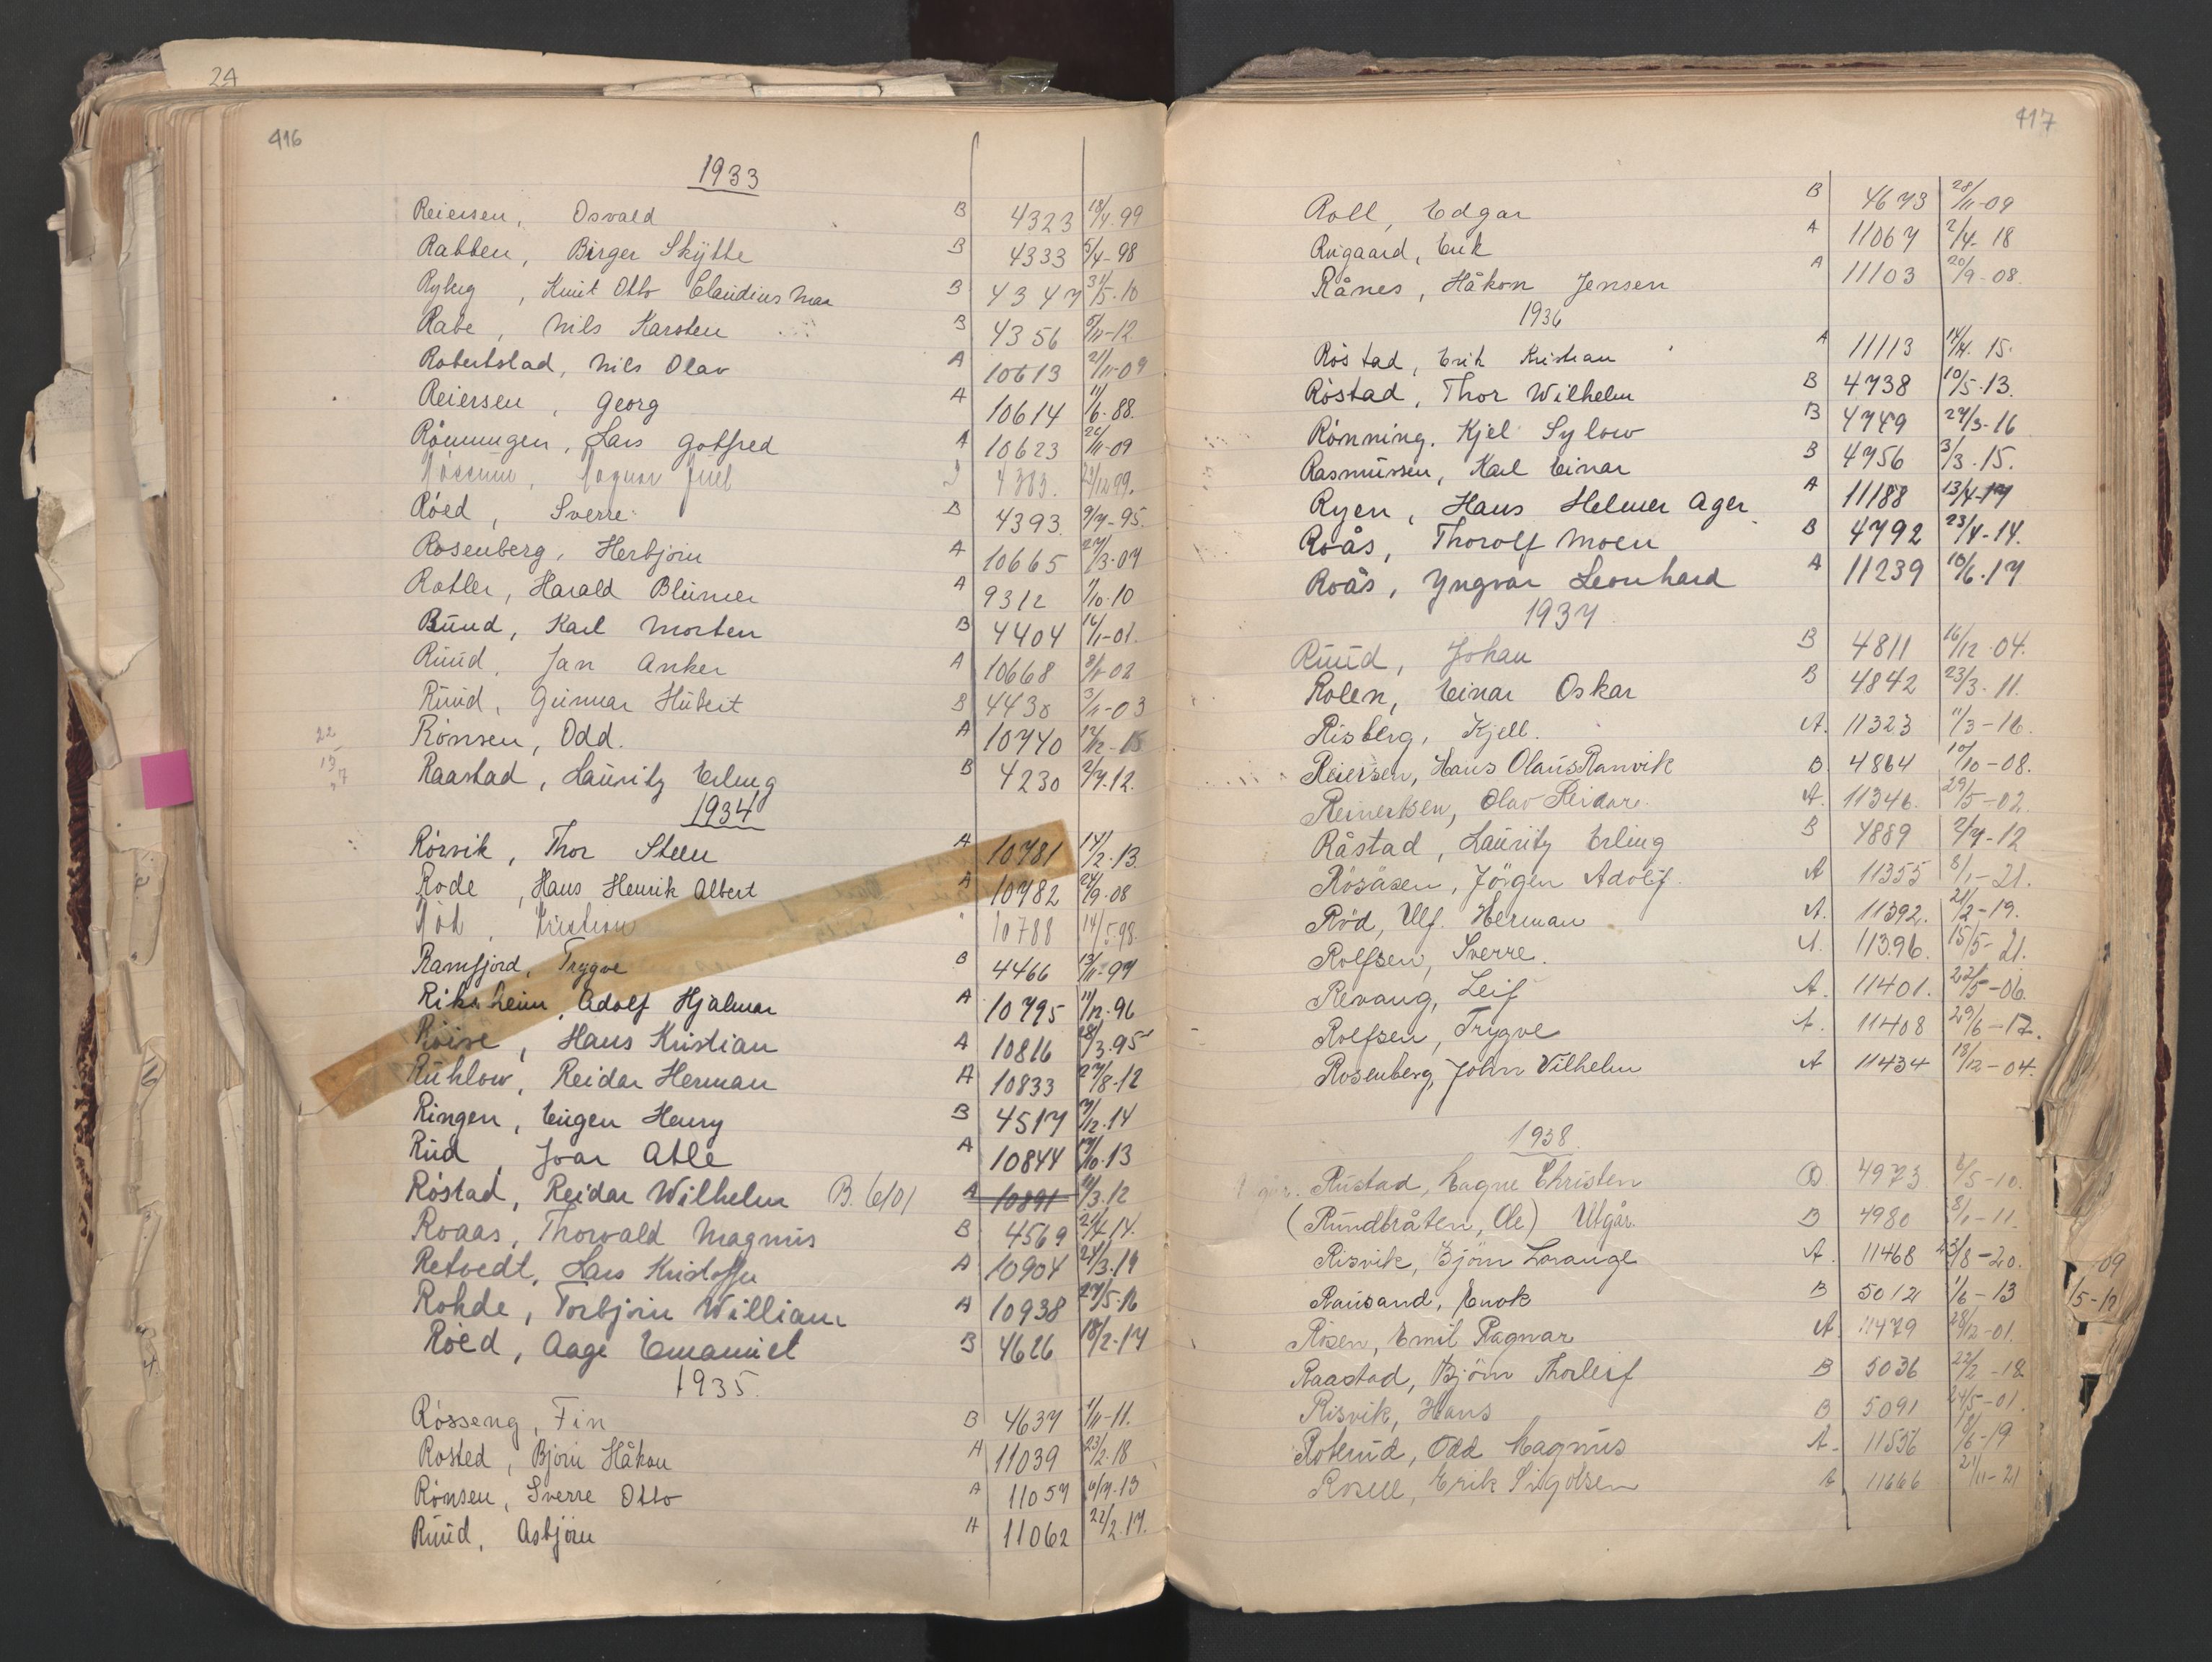 24
416
1933
Reiersen, Osvald B 4323 18/7-99
Rabben, Birger Skÿtte B 4333 5/4-98
Ryberg, Knut Otto Claudius Mar B 4347 31/5-10
Rabe, Nils Karsten B 4356 5/11-12
Robertstad, Nils Olav A 10613 21/11-09
Reiersen, Georg A 10614 11/6-88
Rönningen, Lars Gotfred A 10623 26/11-09
Ragnar Juel 4383. 21/12 99.
Röed, Sverre B 4393 9/7-95
Rosenberg, Herbjörn A 10665 27/3-07
Rotler, Harald Blümer A 9312 1/10-10
Ruud, Karl Morten B 4404 16/1-01.
Ruud, Jan Anker A 10668 02
Ruud, Gunnar Hubert B 4438 3/11-03
Rönsen, Odd. A 10740 12/12-15
22
13
7
Raastad, Lauritz Erling B 4230 2/7-12.
1934
Rörvik, Thor Steen A 10781 14/2-13
Rode, Hans Henrik Albert A 10782 24/9-08
Kristian 10788 14/5 98.
Ramfjord, Trygve B 4466 13/11-97
Riksheim, Adolf Hjalmar A 10795 11/12-96
Röise, Hans Kristian A 10816 28/3.95
Rühlow, Reidar Herman A 10833 27/8-12
Ringen, Eugen Henry B 4517 7/12.14
Rud, Ivar Atle A 10844 17/10-13
Röstad, Reidar Wilhelm B. 6101 A 10891 11/3.12
Roaas, Thorvald Magnus B 4569 21/4.14.
Retvedt, Lars Kristoffer A 10904 24/3.19
Rohde, Torbjörn William A 10938 27/5-16
Röed, Aage Emanuel B 4626 18/2-17
1935.
Rösseng, Fin B 4637 1/11-11.
Rosted, Björn Håkon A 11039 23/2.18
Rönsen, Sverre Otto A 11057 10/7-13
Ruud, Asbjörn A 11062 22/2.17.
417
Roll, Edgar B 4673 28/11-09
Rugaard, Erik A 11067 2/4-18
Rånes, Håkon Jensen A 11103 20/9-08.
1936
Röstad, Erik Kristian A 11113 14/4. 15.
Röstad, Thor Wilhelm B 4738 10/5.13.
Rönning. Kjel Sylow B 4749 27/3-16
Rasmussen, Karl Einar B 4756 3/3.15.
Ryen, Hans Helmer Ager A 11188 13/4-17
Roås, Thorolf Moen B 4792 23/4-14.
Roås, Yngvar Leonhard A 11239 10/6.17
1937
Ruud, Johan B 4811 16/12-04.
Rolen, Einar Oskar B 4842 23/3-11.
Risberg, Kjell. A. 11323 11/3-16.
Reiersen, Hans Olaus Ramvik B. 4864 10/10-08.
Reinertsen, Olav Reidar. A. 11346. 29/5-02.
Råstad, Lauritz Erling B 4889 2/7-12
Rösåsen, Jörgen Adolf. A 11355 8/1-21.
Röd, Ulf. Herman A. 11392. 21/2-19.
Rolfsen, Sverre. A. 11396. 15/5-21.
Revaug, Leif A. 11401. 22/5-06.
Rolfsen, Trygve A. 11408 29/6-17.
Rosenberg, John Vilhelm A 11434 18/12-04.
1938
Rustad, Magne Christen B. 4973 6/5-10.
(Rundbråten, Ole) Utgår. B 4980 8/1-11.
Risvik, Björn Lorange A. 11468 23/8-20.
Rausand, Enok B 5012 1/6-13
Rosen, Emil Ragnar A. 11479 28/12-01.
Raastad, Björn Thorleif B 5036 22/2-18
Risvik, Hans B 5091 24/5-01.
Roterud, Odd Magnus A. 11536 18/6-19
Rosell, Erik Sigolsen A 11666 21/11-21
09
/5-12